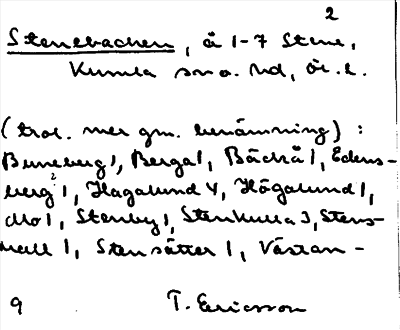 2
Stenebacken, å 1-7 Stene,
Kumla sn o. hd, Ör. l.
(trol. mer gm. benämning) :
Buneberg 1, Berga 1, Bäckrå 1, Edens-
berg 1, Hagalund 4, Högalund 1,
Mo 1, Stenby 1, Stenkulla 3, Stens-
vall 1, Stensätter 1, Västan-
9 T. Ericsson